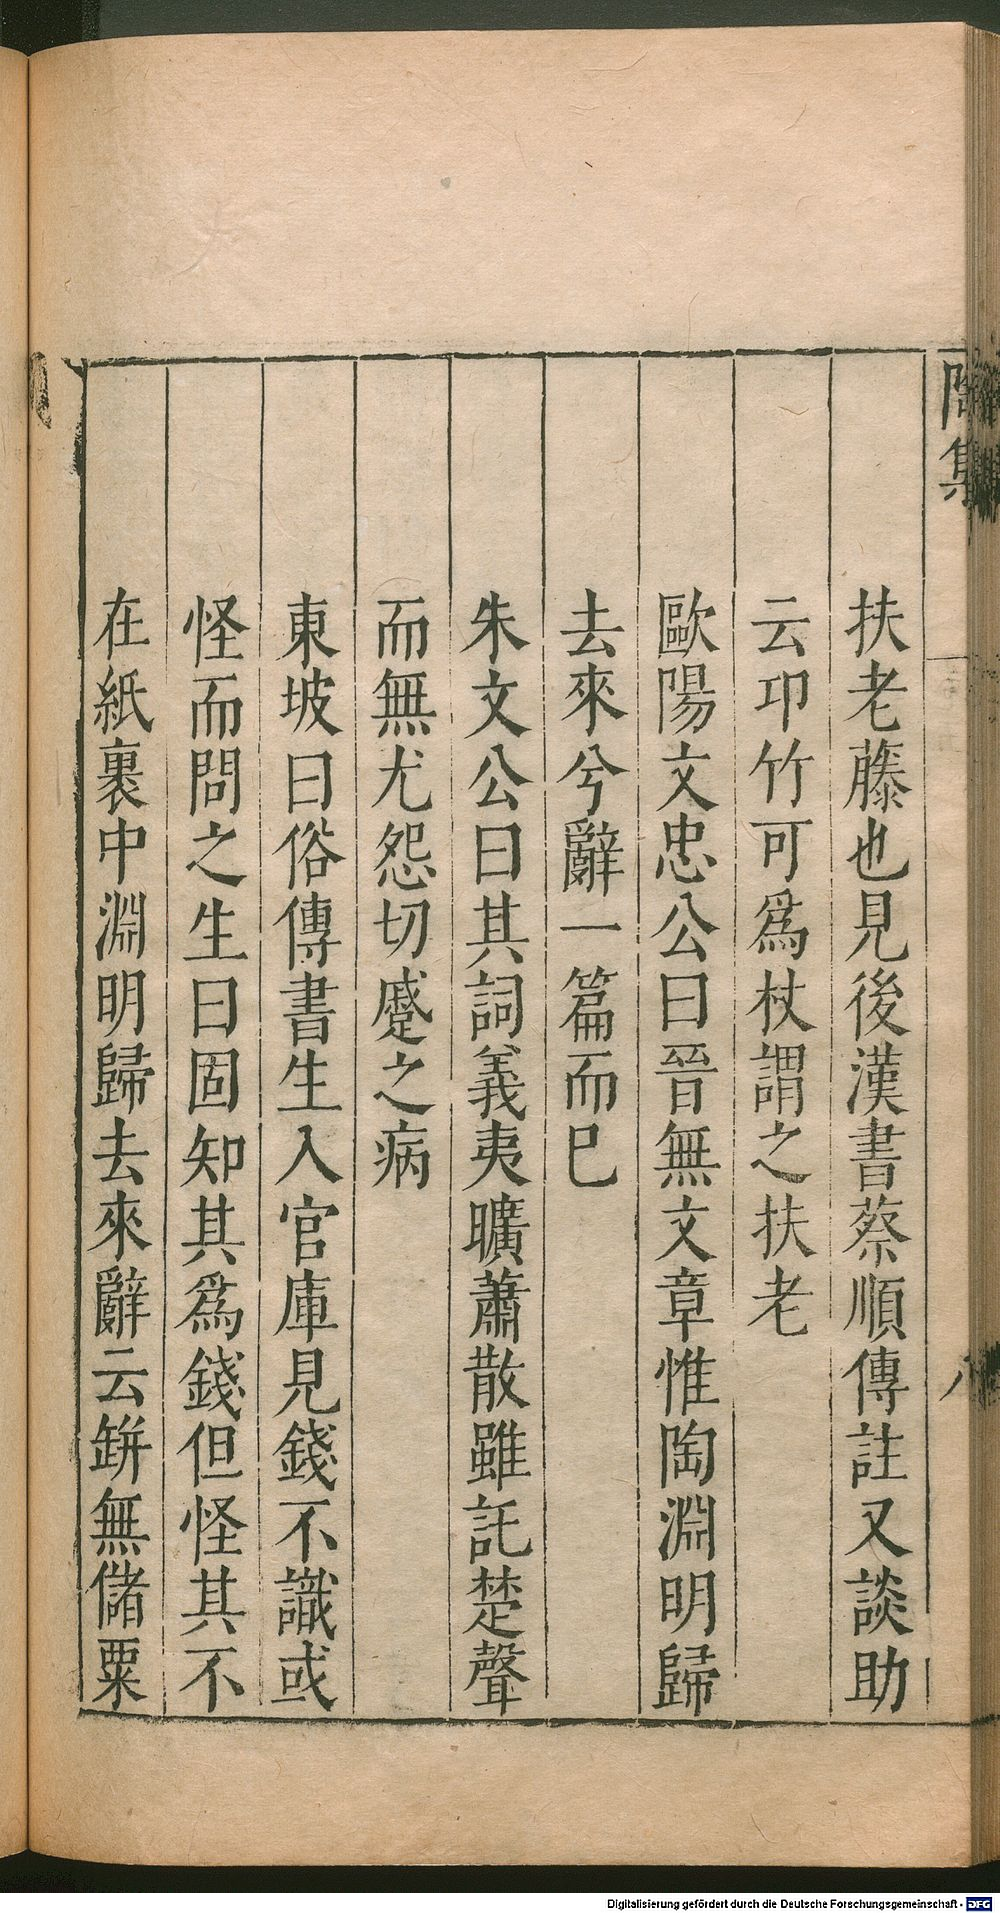 扶老藤也見後漢書蔡順傳註又談助
云卭竹可爲杖謂之扶老
歐陽文忠公曰晉無文章惟陶淵明歸
去來兮辭一篇而已
朱文公曰其詞義夷曠蕭散雖託楚聲
而無尤怨切蹙之病
東坡曰俗傳書生入官庫見錢不識或
怪而問之生曰固知其爲錢但怪其不
在紙裹中淵明歸去來辭云缾無儲粟
Digitalisierung gefördert durch die Deutsche Forschungsgemeinschaft - DFG